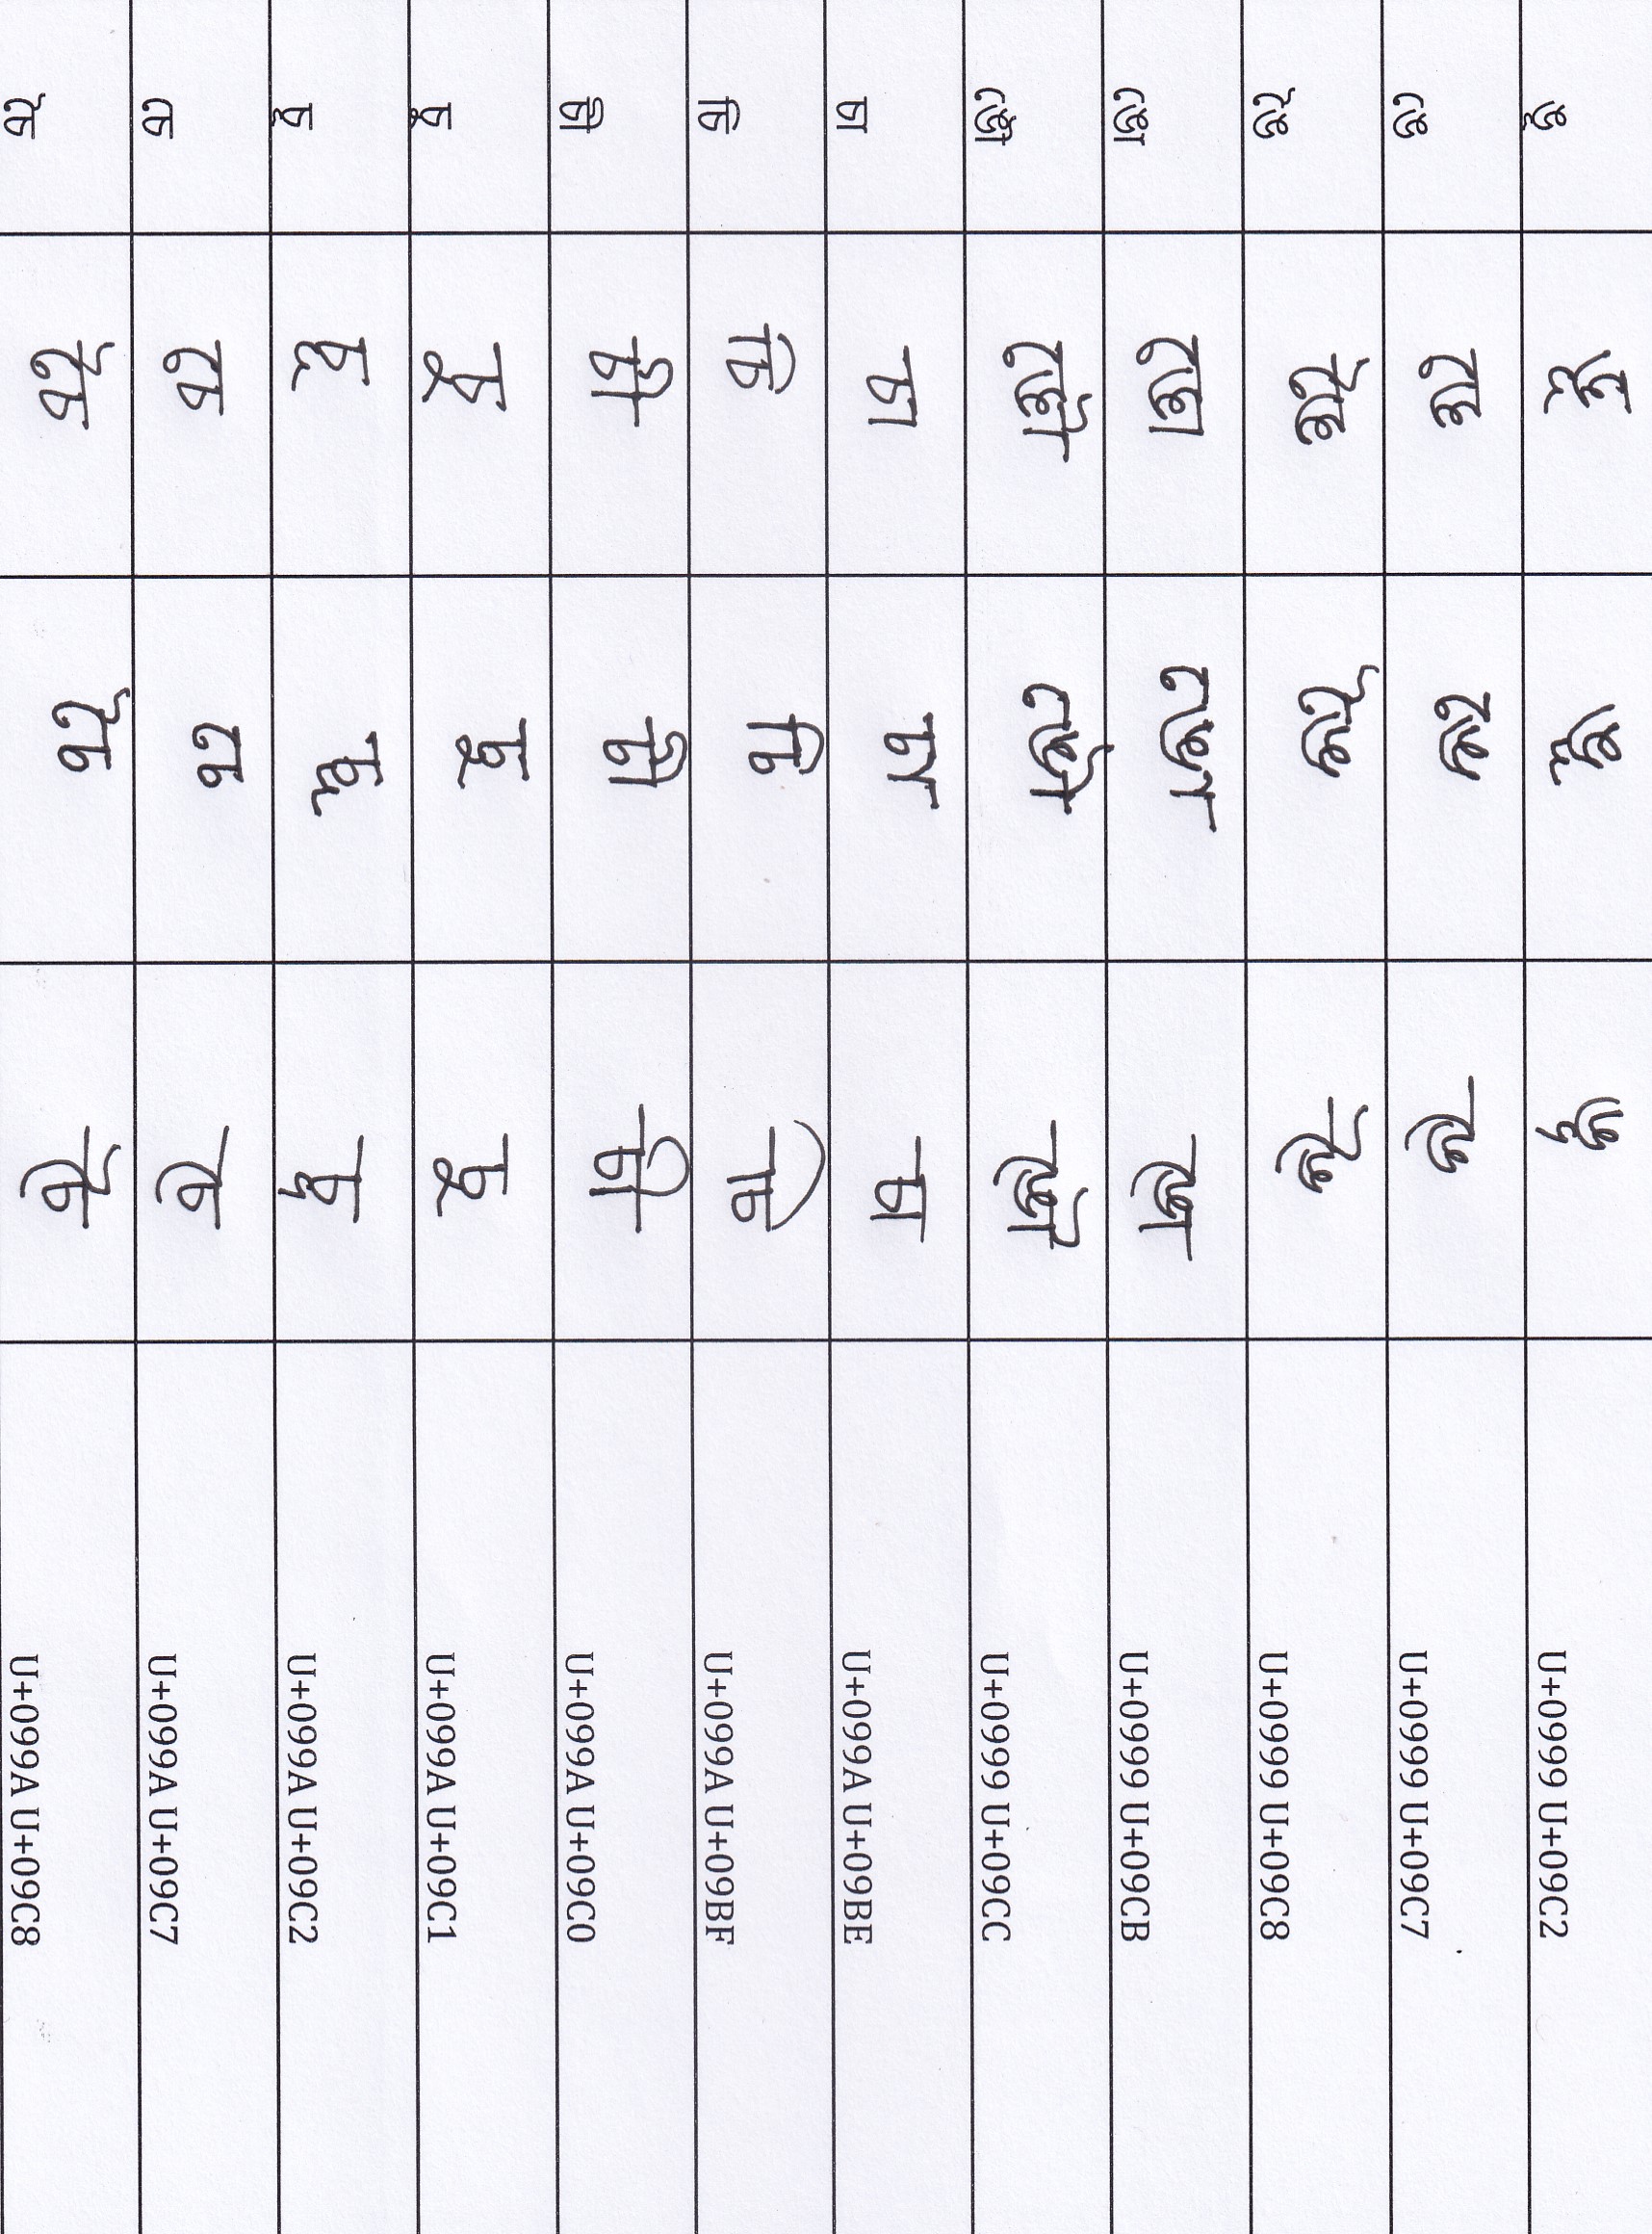 ঙূ ঙূ ঙূ ঙূ U+0999 U+09C2
ঙে ঙে ঙে ঙে U+0999 U+09C7
ঙৈ ঙৈ ঙৈ ঙৈ U+0999 U+09C8
ঙো ঙো ঙো ঙো U+0999 U+09CB
ঙৌ ঙৌ ঙৌ ঙৌ U+0999 U+09CC
চা চা চা চা U+099A U+09BE
চি চি চি চি U+099A U+09BF
চী চী চী চী U+099A U+09C0
চু চু চু চু U+099A U+09C1
চূ চূ চূ চূ U+099A U+09C2
চে চে চে চে U+099A U+09C7
চৈ চৈ চৈ চৈ U+099A U+09C8